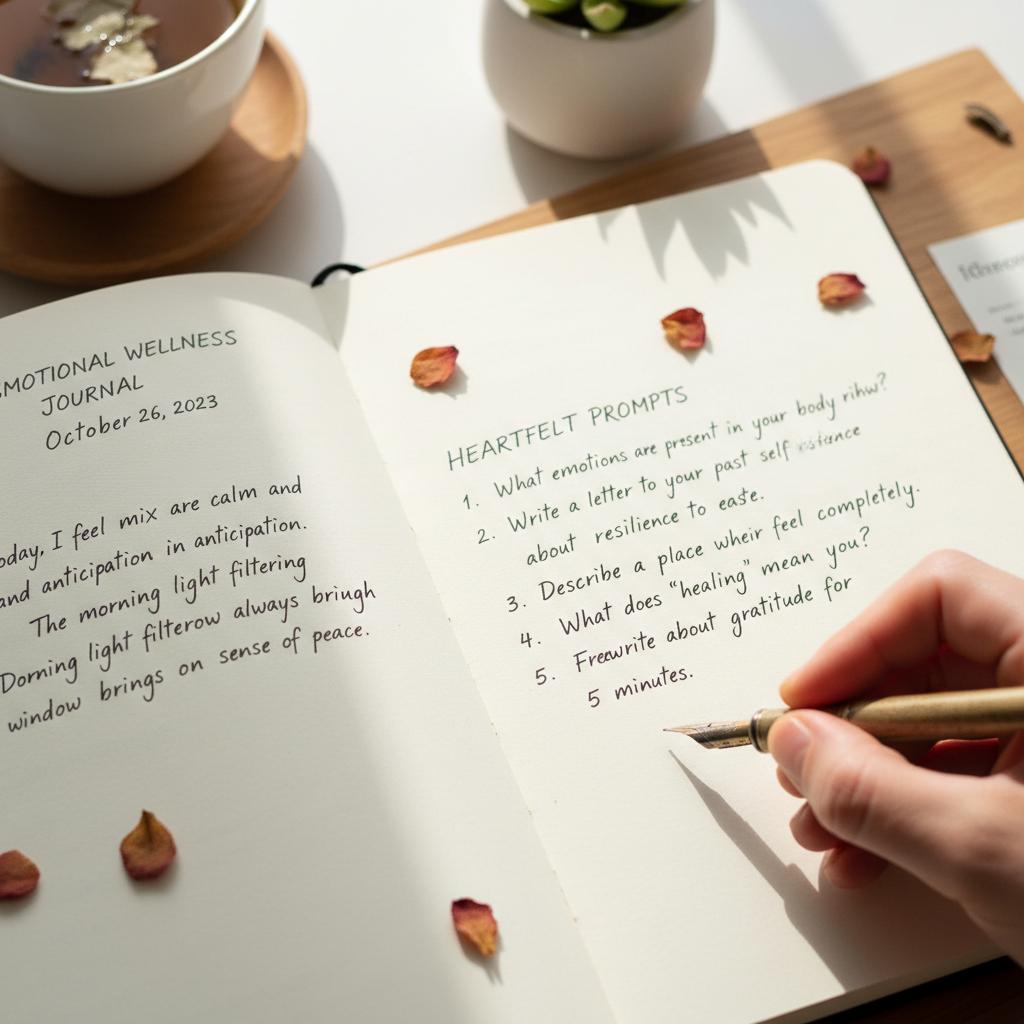 EMOTIONAL WELLNESS
JOURNAL
October 26, 2023
oday, I feel mix are calm and
and anticipation in anticipation.
The morning light filtering
Dorning light filterow always briugh
window brings on sense of peace.
HEARTFELT PROMPTS
1. What emotions are present in your body rihw?
2. Write a letter to your past self
about resilience to easte.
3. Describe a place wheir feel completely.
4. What does "healing" mean you?
5. Freewrite about gratitude for
5 minutes.